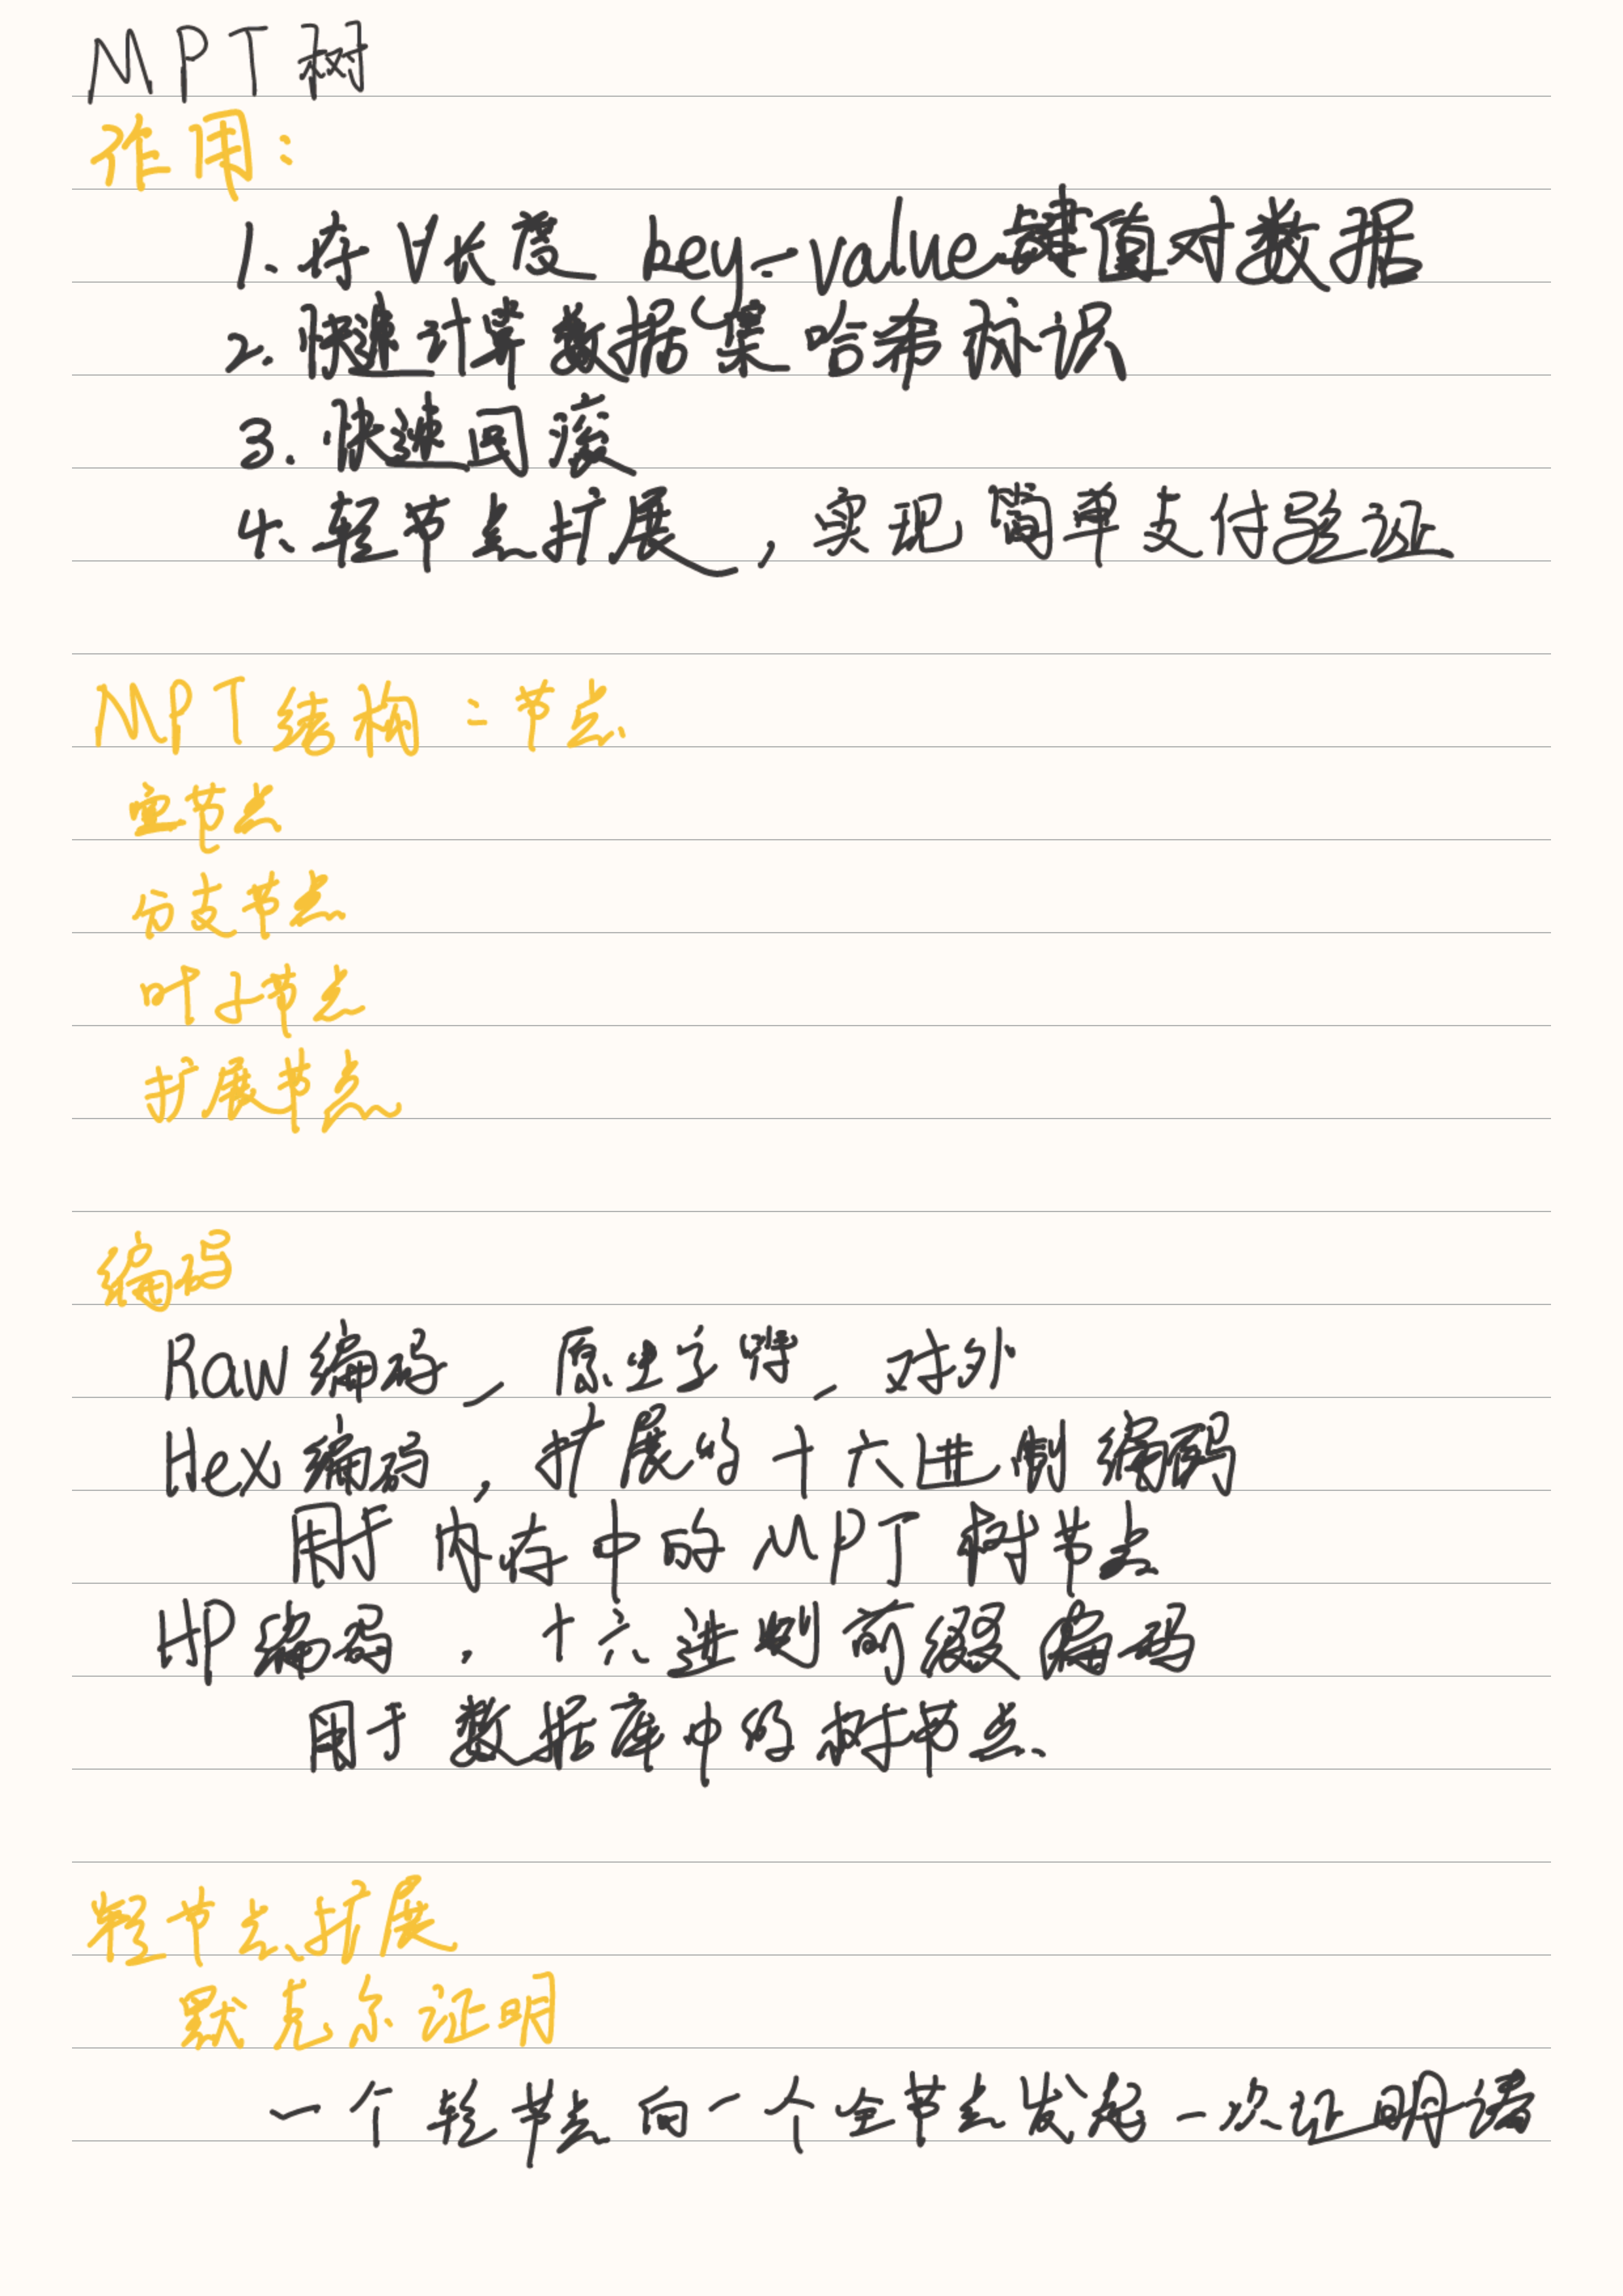 MPT树
作用：
1. 存 V长度 key-value键值对数据
2. 快速计算数据集哈希标识
3. 快速回滚
4. 轻节点扩展，实现简单支付验证
MPT结构：节点
空节点
分支节点
叶子节点
扩展节点
编码
Raw编码，原生字符，对外
Hex编码，扩展的十六进制编码
用于内存中的MPT树节点
HP编码，十六进制前缀编码
用于数据库中的树节点
轻节点扩展
默克尔证明
一个轻节点向一个全节点发起一次证明请